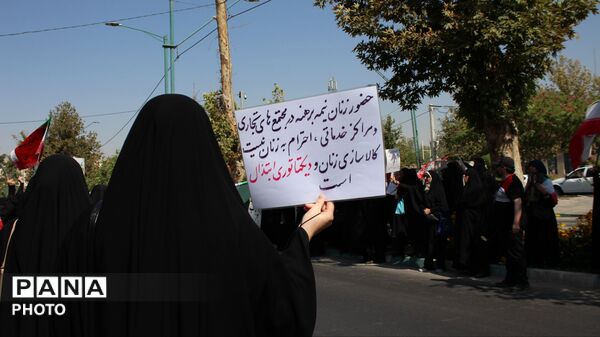 حضور زنان نیمه برهنه در مجتمع های تجاری
و مراکز خدماتی، احترام به زنان نیست
کالاسازی زنان و دیکتاتوری ابتذال
است
PANA
PHOTO